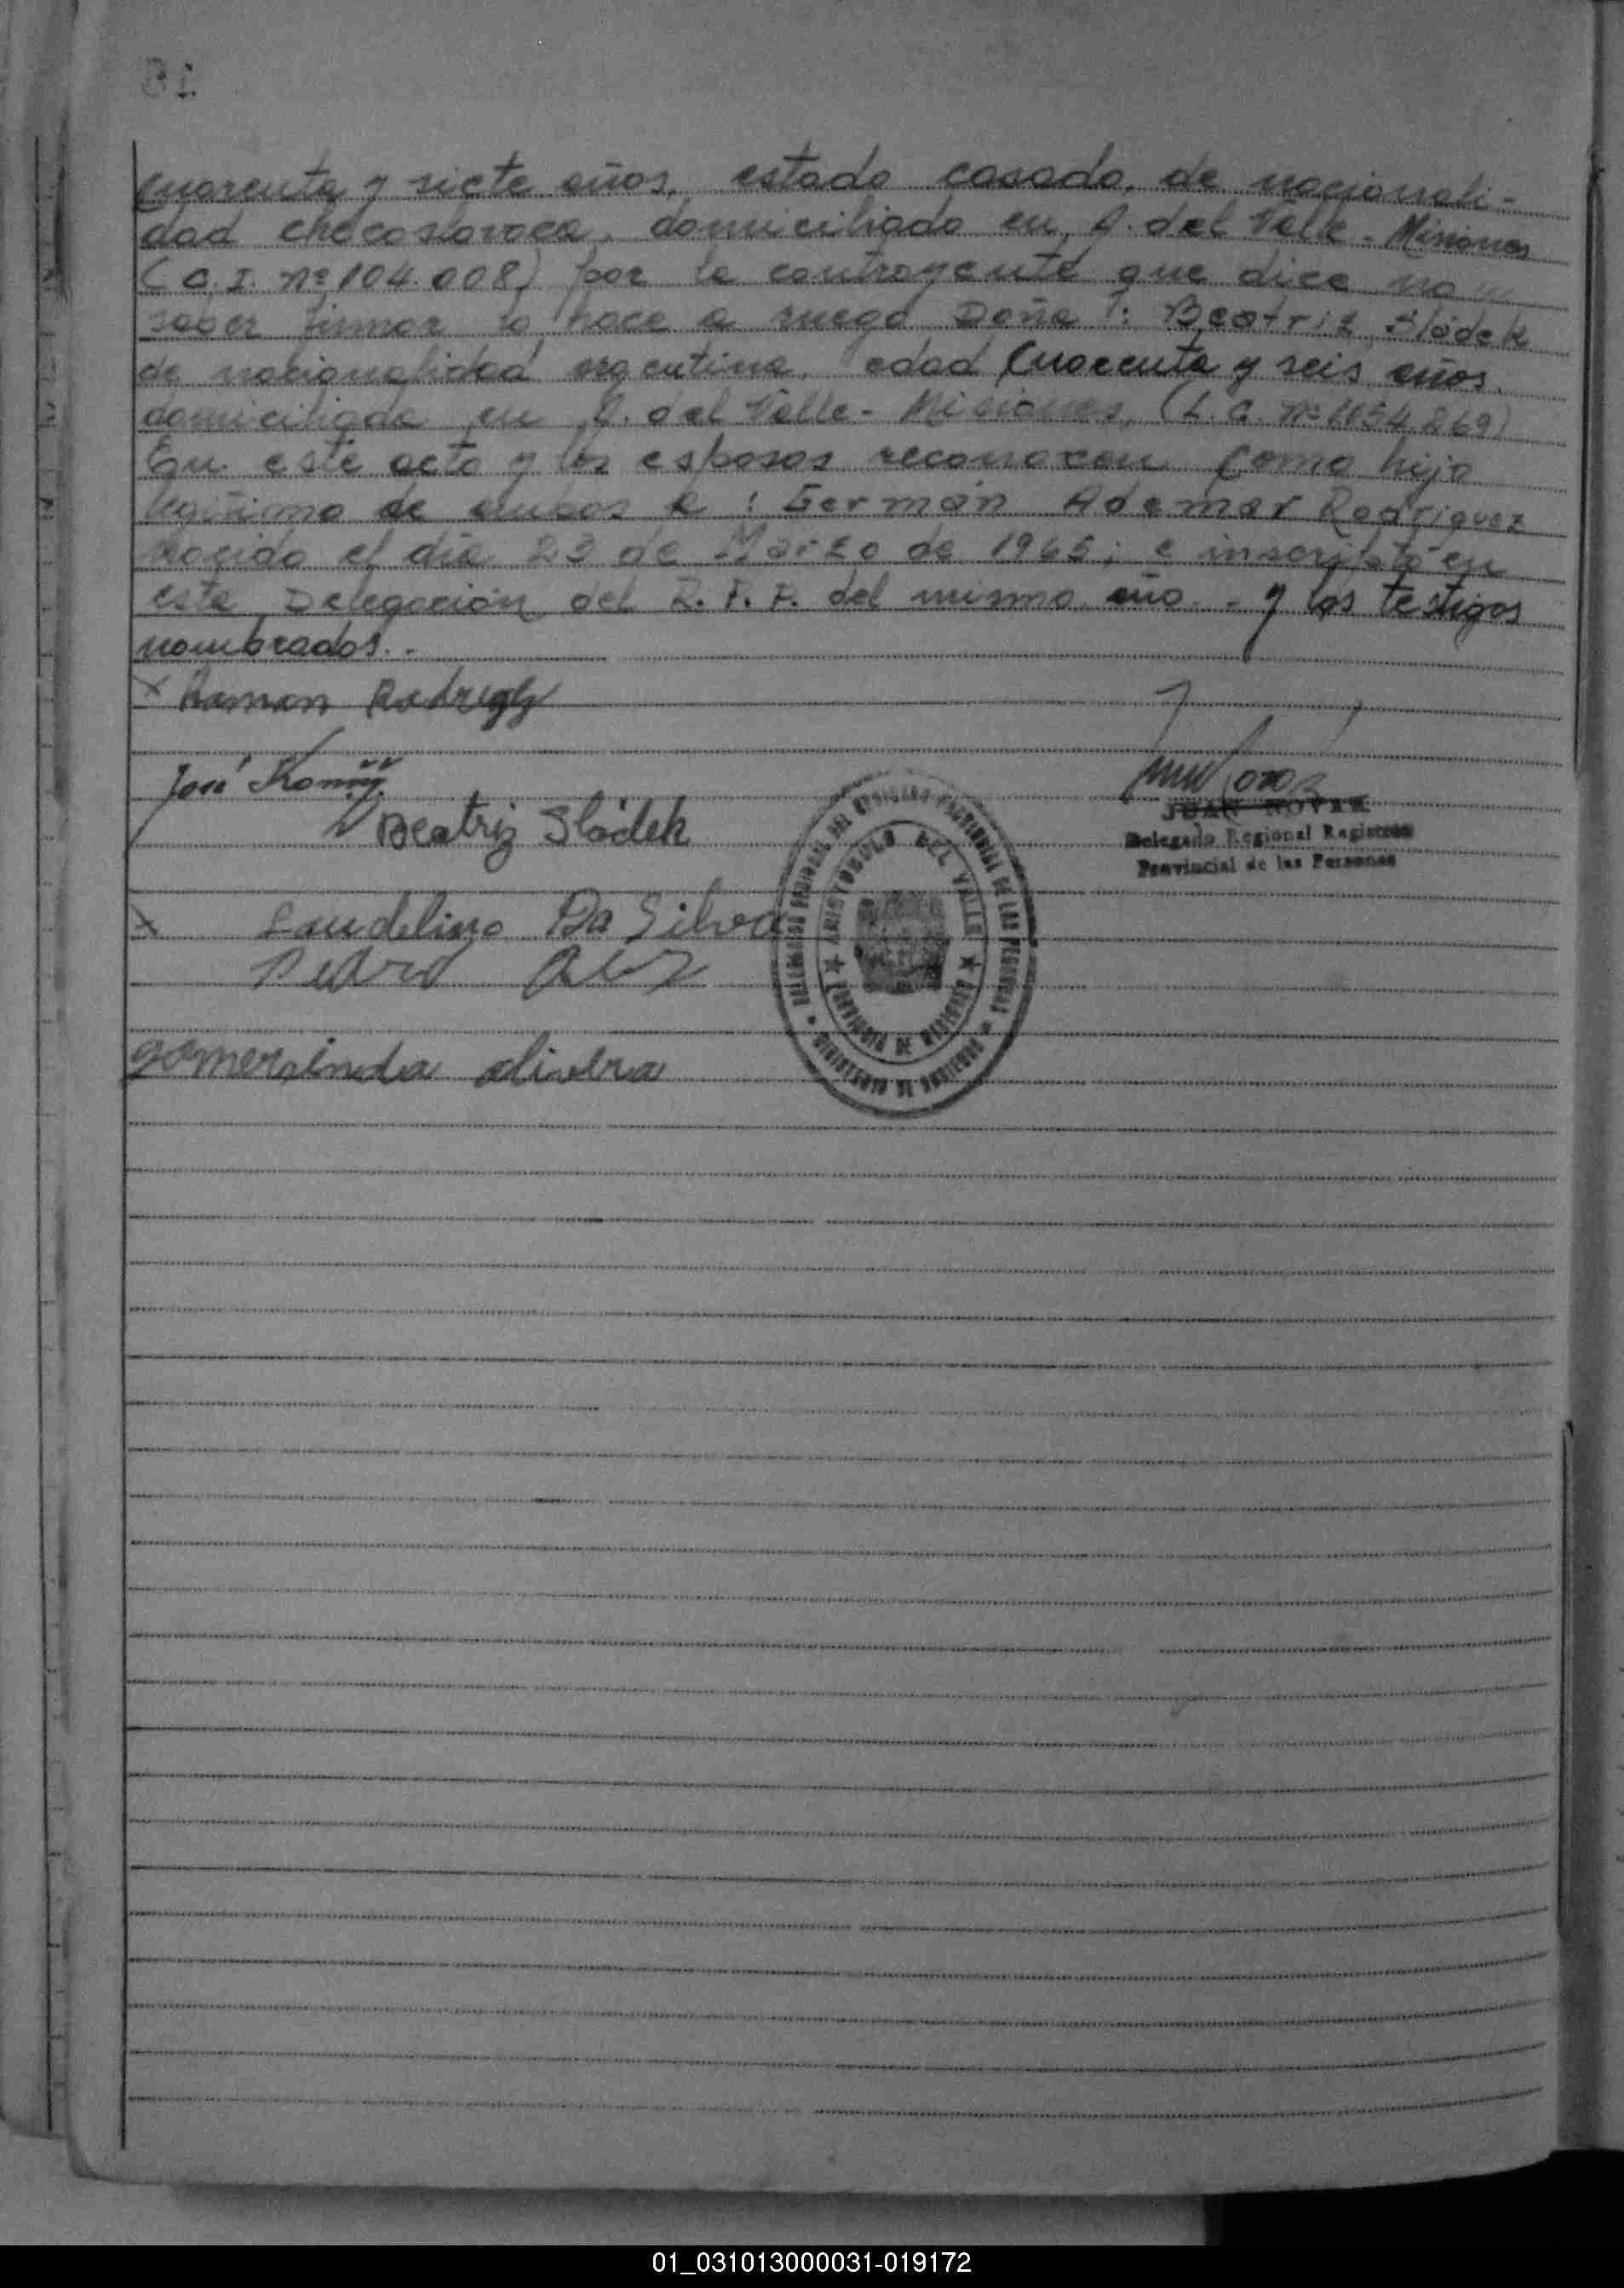 Cuarenta y siete años, estado casado, de nacionali-
dad checoslovaca, domiciliado en A. del Valle - Misiones
(C.I. Nº 104.008) por la contrayente que dice no
saber firmar lo hace a ruego Doña: Beatriz Sládek
de nacionalidad argentina, edad Cuarenta y seis años,
domiciliada en A. del Valle - Misiones, (L.C. Nº 1.154.269)
En este acto y los esposos reconocen como hijo
legítimo de ambos a: Germán Ademar Rodriguez
nacido el día 23 de Marzo de 1965; e inscripto en
esta Delegación del R.P.P. del mismo año. - y los testigos
nombrados. -
x Ramon
José
Beatriz Sládek
JUAN NOVAK
Delegado Regional Registro
Provincial de las Personas
x Laudelino Da Silva
Pedro
gomersinda olivera
DELEGACION REGIONAL DEL REGISTRO PROVINCIAL DE LAS PERSONAS
MINISTERIO DE GOBIERNO
ARISTOBULO DEL VALLE
PROVINCIA DE MISIONES
01_031013000031-019172